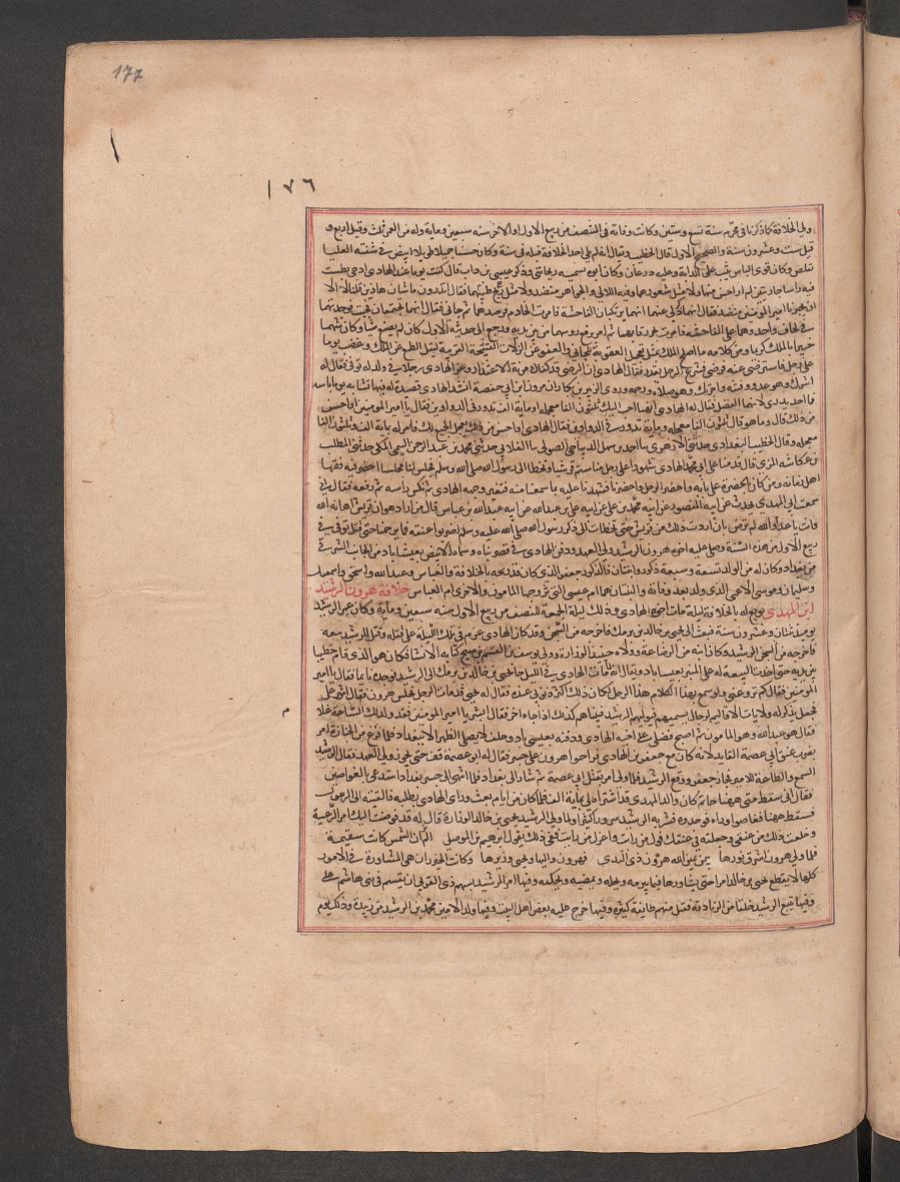 177
١٧٦
ولي الخلافة كما ذكرنا في محرم سنة تسع وستين وكانت وفاته في المنتصف من ربيع الاول او الاخر سنه سبعين ومايه وله من العمر ثلث وقيل اربع و
قيل ست وعشرون سنة والصحيح الاول قال الخطيب ويقال انه لم يلي احد الخلافة قبله في سنه وكان حسنا جميلا طويلا ابيض في شفته العليا
تقلص وكان قوي الباس يثب على الدابة وعليه درعان وكان ابوه يسميه ريحانتي وذكر عيسى بن داب قال كنت يوما عند الهادي اذ جي بطست
فيه راسا جاريتين لم ار احسن منهما ولا مثل شعورهما وفيه اللالي والجواهر منضد ولا مثل ريح طيبهما فقال اتدرون ما شان هاذين قلنا لا
في لحاف واحد وهما على الفاحشه فامرت بحز رقابهما ثم امر برفع روسهما من بين يديه ورجع الى حديثه الاول كان لم يصنع شيا وكان شهما
خبيرا بالملك كريما ومن كلامه ما اصلح الملك بمثل تعجيل العقوبة للجاني والعفو عن الزلات القريبة ليقل الطمع عن الملك وغضب يوما
على رجل فاسترضى عنه فرضي فشرع الرجل يعتذر فقال الهادي ان الرضى قد كفاك مونة الاعتذار وعزى الهادي رجلا في ولد له توفي فقال له
سرك وهو عدو وفتنه واحزنك وهو صلاة ورحمه وروى الزبير بن بكار ان مروان بن ابي حفصة انشد الهادي قصيدة له فيها تشابه يوما باسه
فما احد يدري لايهما الفضل فقال له الهادي ايما احب اليك ثلثون الفا معجله او ماية الف تدور في الدواوين فقال يا امير المومنين او احسن
من ذلك قال وما هو قال ثلثون الفا معجله وماية تدور في الدواوين فقال الهادي او احسن من ذلك نعجل الجميع لك فامر له بماية الف وثلثون الفا
معجله وقال الخطيب البغدادي حدثني الازهري
بن عكاشه المزي قال قدمنا على ابي محمد الهادي شهودا على رجل منا ستم قريشا وتخطا الى رسول الله صلى الله وسلم فجلس لنا مجلسا احضر فيه فقها
اهل زمانه ومن كان بالحضرة على بابه واحضر الرجل واحضرنا فشهدنا عليه بما سمعنا منه فتغير وجه الهادي ثم نكس راسه ثم رفعه فقال اني
سمعت ابي المهدي يحدث عن ابيه المنصور عن ابيه محمد بن علي عن ابيه علي بن عبد الله عن ابيه عبد الله بن عباس قال من اراد هوان قريش اهانه الله
وانت يا عدو الله لم ترض بان اردت ذلك من قريش حتى تخطات الى ذكر رسول الله صلى الله عليه وسلم اضربوا عنقه فما برحنا حتى قتل توفي في
ربيع الاول من هذه السنة وصلى عليه اخوه هرون الرشيد ولي العهد ودفن الهادي في قصر بناه وسماه الابيض بعيساباد من الجانب الشرقي
من بغداد وكان له من الولد تسعة وسبعة ذكور وابنتان فالذكور جعفر الذي كان قد رشحه بالخلافة والعباس وعبد الله واسحق واسمعيل
وسليمان وموسى الاعمى الذي ولد بعد وفاته والبنتان هما ام عيسى التي تزوجها المامون والاخرى ام العباس خلافة هرون الرشيد
ابن المهدي بويع له بالخلافة ليلة مات اخوه الهادي وذلك ليلة الجمعة للنصف من ربيع الاول سنه سبعين ومايه وكان عمر الرشيد
يوميذ ثنتان وعشرون سنة فبعث الى يحيى بن خالد بن برمك فاخرجه من السجن وقد كان الهادي عزم في تلك الليلة على قتله وقتل الرشيد معه
فاخرجه من السجن الرشيد وكان ابنه من الرضاعة وولاه حينيذ الوزارة وولى يوسف بن القسم بن صبيح كتابه الانشا فكان هو الذي قام خطيبا
بين يديه حتى اخذت البيعة له على المنبر بعيساباد ويقال انه لما مات الهادي في الليل جا يحيى بن خالد بن برمك الى الرشيد فوجده نايما فقال يا امير
المومنين فقال كم تروعني ولو سمع بهذا الكلام هذا الرجل لكان ذلك اكبر ذنوبي عنده فقال له يحيى قد مات الرجل فجلس هرون فقال اشر علي
فجعل يذكر له ولايات الاقاليم لرجال يسميهم فيوليهم الرشيد فبينا هو كذلك اذ جا اخر فقال ابشر يا امير المومنين فقد ولد لك الساعة غلام
فقال هو عبد الله وهو المامون ثم اصبح فصلى على اخيه الهادي ودفنه بعيساباد وحلف لا يصلي الظهر الا ببغداد فلما فرغ من الجنازة امر
بضرب عنق ابي عصمة القايد لانه كان مع جعفر بن الهادي فزاحموا هرون على جسر فقال له ابو عصمة قف حتى يجوز ولي العهد فقال الرشيد
السمع والطاعة للامير فجاز جعفر ووقف الرشيد فلما ولي امر بقتل ابي عصمة ثم سار الى بغداد فلما انتهى الى جسر بغداد استدعى بالغواصين
فقال اني سقط مني ههنا خاتم كان والد المهدي قد اشتراه لي بماية الف فلما كان من ايام بعث وراي الهادي يطلبه فالقيته الى الرسول
فسقط ههنا فغاصوا وراه فوجدوه فسر به الرشيد سرورا كثيرا ولما ولى الرشيد يحيى بن خالد الوزارة قال له قد فوضت اليك امر الرعية
وخلعت ذلك من عنقي وجعلته في عنقك فول من رايت واعزل من رايت ففي ذلك يقول ابراهيم الموصلي الم تر ان الشمس كانت سقيمة
فلما ولي هرون اشرق نورها بيمن امين الله هرون ذي الندى فهرون واليها ويحيى وزيرها وكانت الخيزران هي المشاورة في الامور
كلها لا يقطع يحيى بن خالد امرا حتى يشاورها فيما يبرمه ويحله ويمضيه ويحكمه وفيها امر الرشيد بسهم ذي القربى ان يقسم في بني هاشم على
وفيها تتبع الرشيد خلقا من الزنادقة فقتل منهم طايفة كثيرة وفيها خرج عليه بعض اهل البيت وفيها ولد الامين محمد بن الرشيد من زبيدة وذلك يوم